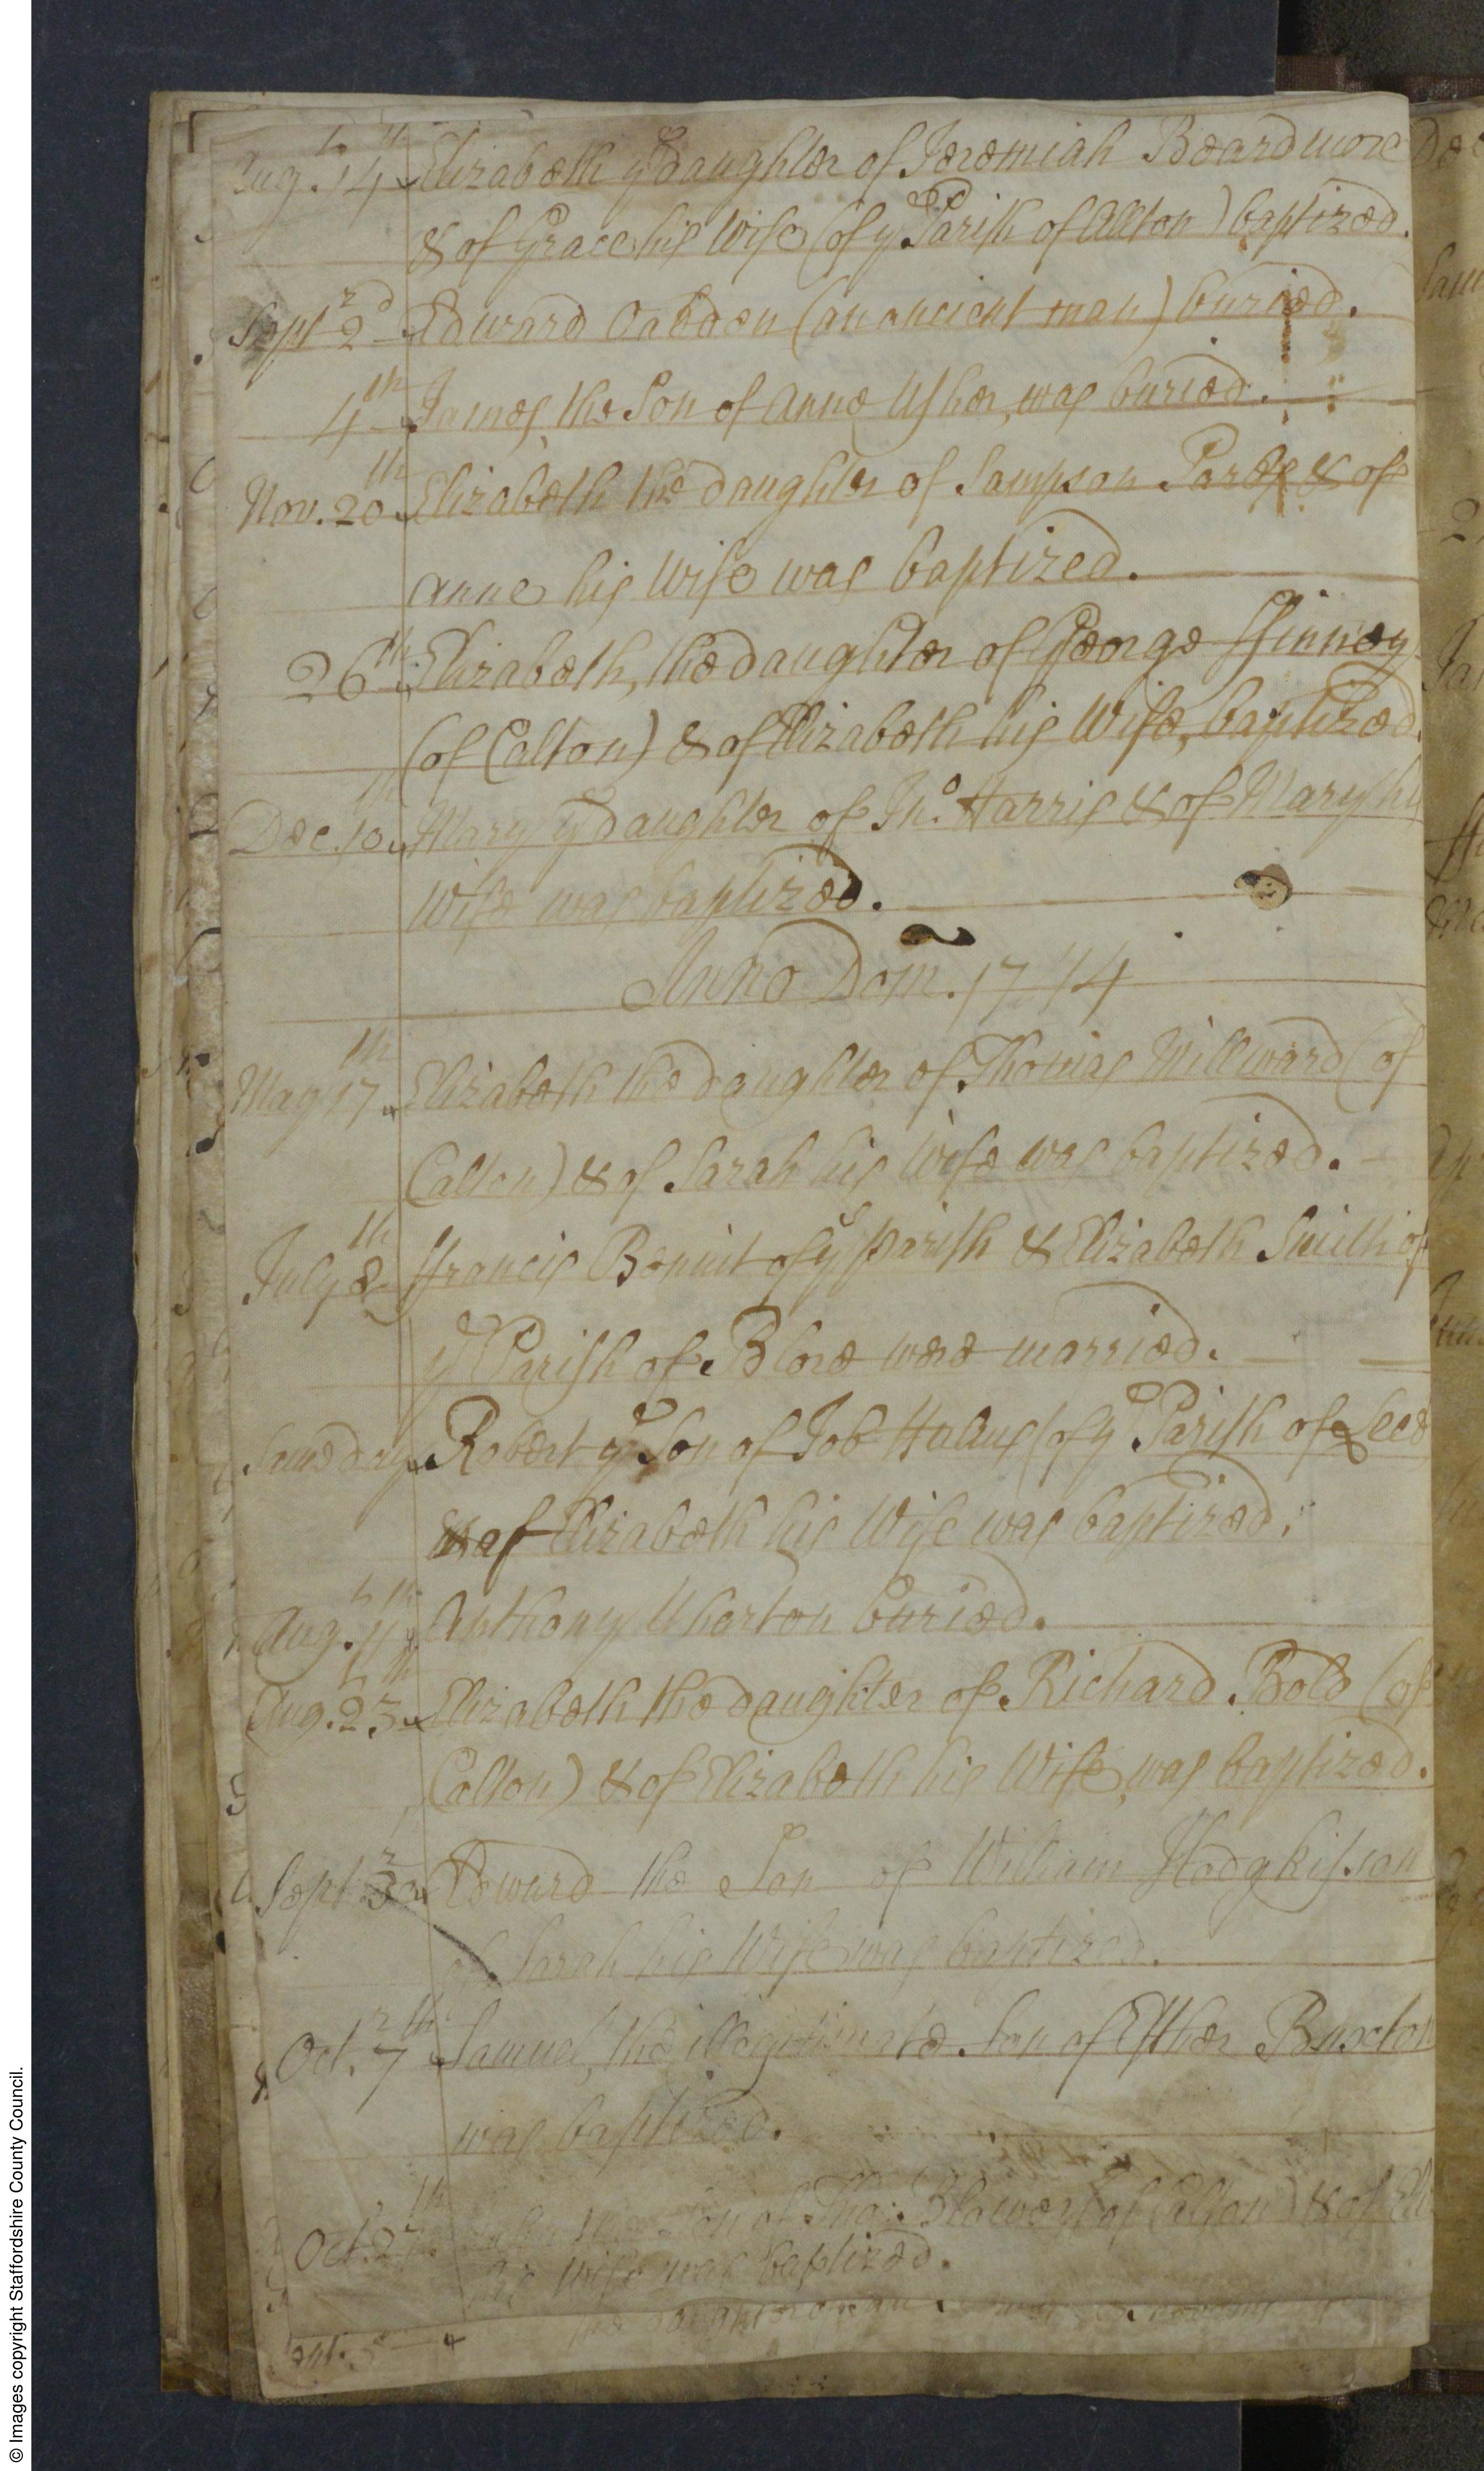 Aug. 14th Elizabeth ye daughter of Jeremiah Beardmore
& of Grace his Wife (of ye Parish of Allton) baptized.
Sept 2d Edward Oabden (an ancient man) buried.
4th James, the Son of Anne Usher, was buried.
Nov. 20th Elizabeth the daughter of Sampson & of
Anne his Wife was baptized.
26th Elizabeth, the daughter of George ffinney
(of Calton) & of Elizabeth his Wife, baptized.
Dec. 10th Mary ye daughter of Tho. Harris & of Mary his
Wife was baptized.
Anno Dom. 1714
May 17th Elizabeth the daughter of Thomas Millward (of
Calton) & of Sarah his Wife was baptized.
July 8th ffrancis Bennit of ys parish & Elizabeth Smith of
ye Parish of Blore were married.
Same day Robert ye Son of Job (of ye Parish of
& of Elizabeth his Wife was baptized.
Aug. 11th Anthony Wharton buried.
Aug. 23th Elizabeth the daughter of Richard Bold (of
Calton) & of Elizabeth his Wife, was baptized.
Sept. Edward the Son of William Hodgkisson
of Sarah his Wife was baptized.
Oct. 7th Samuel, the illegitimate Son of Esther Buxton
was baptized.
Oct. of Tho: Blower (of Calton) & of
his Wife was baptized.
the daughter of
© Images copyright Staffordshire County Council.